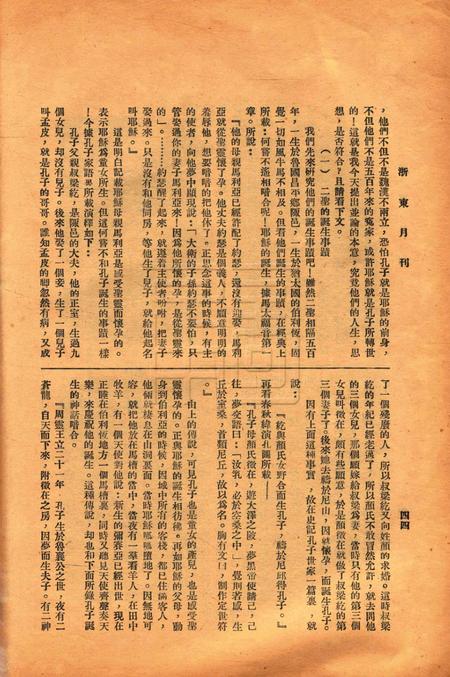 浙東月刊
四四
，他們不但不是魏漢不兩立，恐怕孔子就是耶穌的前身，
不但他們不是五百年來的冤家，或許耶穌就是孔子所轉世
的！這就是我今天提出並論的本意，究竟他們的人生，思
想，是否符合？且請看下文。
（一）　二聖的誕生事蹟
我們先來研究他們的誕生事蹟啊！雖然二聖相隔五百
年，一生於魯國昌平鄉陬邑，一生於猶太國的伯利恆，固
覺一切如風牛馬不相及。但看他們誕生的事蹟，在經典上
所載：何嘗不遙遙暗合呢！耶穌的誕生，據馬太福音第一
章。所說：
『他的母親馬利亞已經許配了約瑟，還沒有迎娶，馬利
亞就從聖靈懷了孕。他丈夫約瑟是個義人，不願意明明的
羞辱他，想要暗暗的把他休了。正思念這事的時候，有主
的使者，向他夢中顯現說：「大衛的子孫約瑟不要怕，只
管娶過你的妻子馬利亞來！因爲他所懷的孕，是從聖靈來
的」。……約瑟醒了起來，就遵着主使者吩咐，把妻子
娶過來。只是沒有和他同房，等他生了兒子，就給他起名
叫耶穌。』
這是明白記載耶穌母親馬利亞是感受聖靈而懷孕的。
表示耶穌爲童女所生。但這何嘗不和孔子誕生的事蹟一樣
！今據孔子家語等所載演繹如下：
孔子父親叔梁紇，是陬邑的大夫，他的正室，生過九
個女兒，却沒有兒子。後來他娶了一個妾，生了一個兒子
叫孟皮，就是孔子的哥哥。誰知孟皮的脚忽然有病，又成
了一個殘廢的人，所以叔梁紇又向姓顏的求婚。這時叔梁
紇的年紀已經老邁了，所以顏氏不敢冒然允許，就去問他
的三個女兒，那個願嫁給叔梁爲妻，當時只有他的第三個
女兒叫徵在，頗有些願意，於是顏徵在就做了叔梁紇的第
三個妻子了。後來她去禱於尼山，因就懷孕，而誕生孔子。
因有上面這種事實，故在史記孔子世家一篇裏，就
說：
『紇與顏氏女野合而生孔子，禱於尼邱得孔子。』
再看春秋緯演孔圖所載——
『孔子母顏氏徵在，遊大澤之陂，夢黑帝使請己，己
往，夢交語曰：「汝乳，必於空桑之中」，覺則若感，生
丘於空桑，首類尼丘，故以爲名。胸有文曰，制作定世符
』
由上的傳說，可見孔子也是童女的產兒，也是感受聖
靈懷孕的。正與耶穌的誕生相彷彿。再如耶穌的父母，動
身到伯利亞的時候，因城中所有的客棧，都已住滿客人，
他倆就棲息在山洞裏面。當時耶穌呱呱墮地了。因無地可
容，就把他放在馬槽的當中，當夜有一羣看羊人，在田中
牧羊，有一個天使對他說：新生的彌賽亞已經出世，現在
正睡在伯利恆地方一個馬槽裏，同時又聽見天使齊聲奏天
樂，來慶祝他的誕生。這種傳說，却也和下面所錄孔子誕
生的神話暗合。
『周靈王立二十一年，孔子生於魯襄公之世，夜有二
蒼龍，自天而下來，附徵在之房，因夢而生夫子。有二神